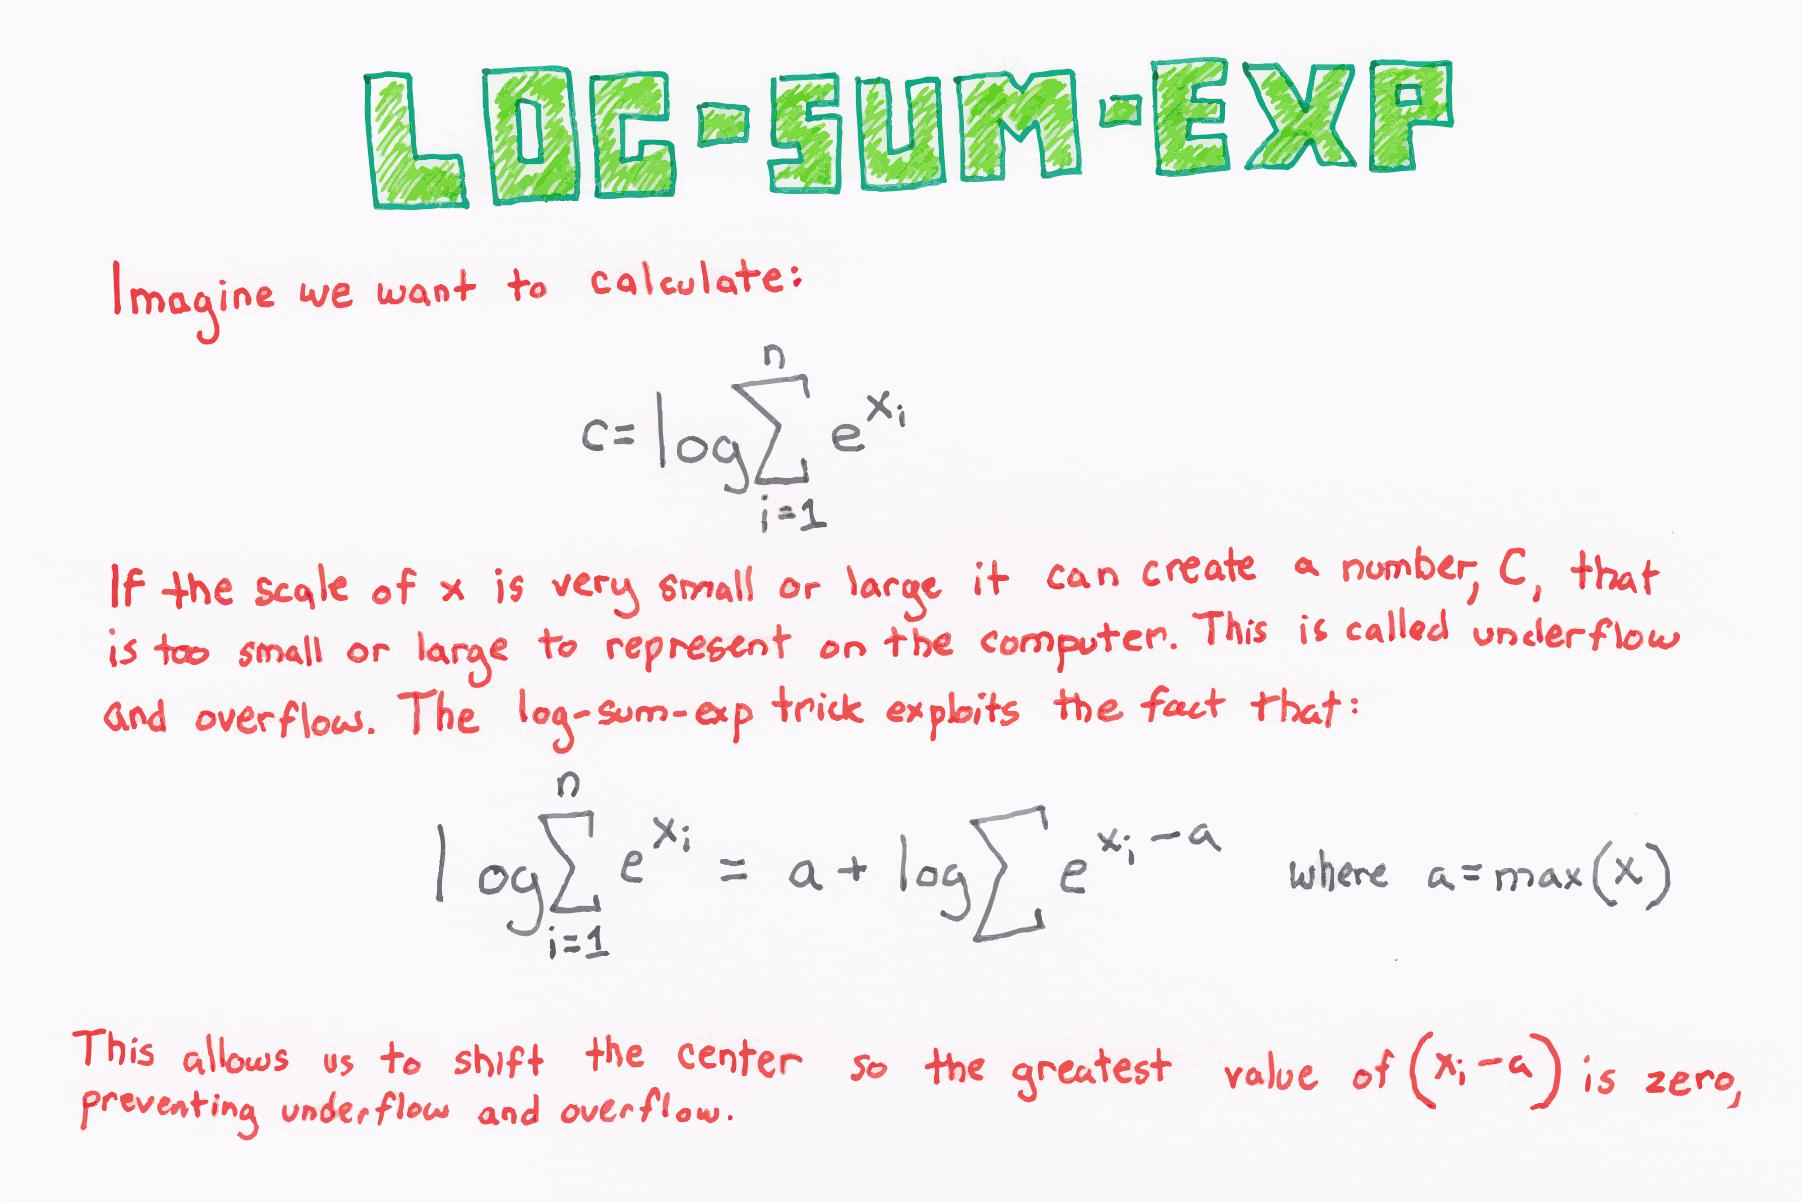 LOG-SUM-EXP
Imagine we want to calculate:
c = log ∑_{i=1}^{n} e^{x_i}
If the scale of x is very small or large it can create a number, C, that
is too small or large to represent on the computer. This is called underflow
and overflow. The log-sum-exp trick exploits the fact that:
log ∑_{i=1}^{n} e^{x_i} = a + log ∑ e^{x_i - a} where a = max(x)
This allows us to shift the center so the greatest value of (x_i - a) is zero,
preventing underflow and overflow.